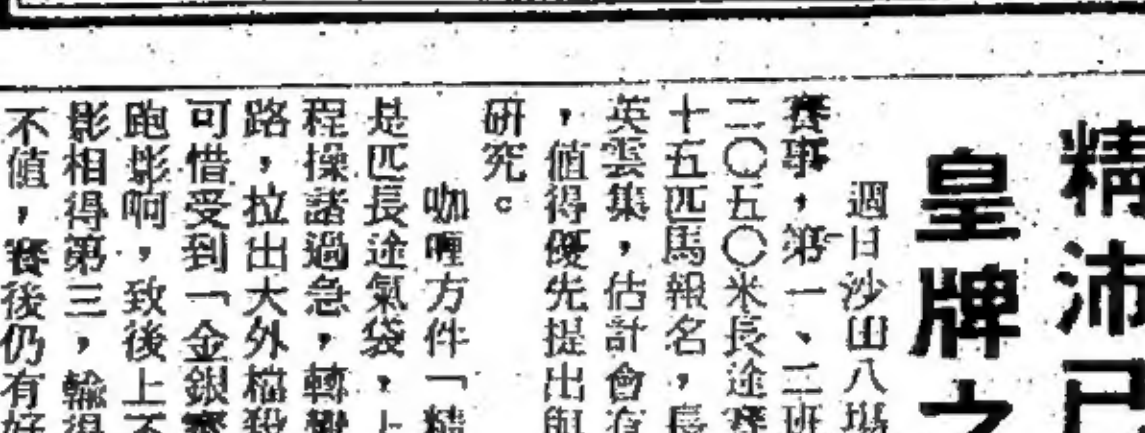 精沛已
皇牌之
週日沙田八場
賽事,第一、二班
二〇五〇米長途賽
十五匹馬報名,長
英雲集,估計會有
,值得優先提出與
研究。
咖喱方件「精
是匹長途氣袋,上
程操諸過急,轉彎
路,拉出大外檔殺
可惜受到「金銀寶
跑影响,致後上不
影相得第三,輸得
不值,賽後仍有好